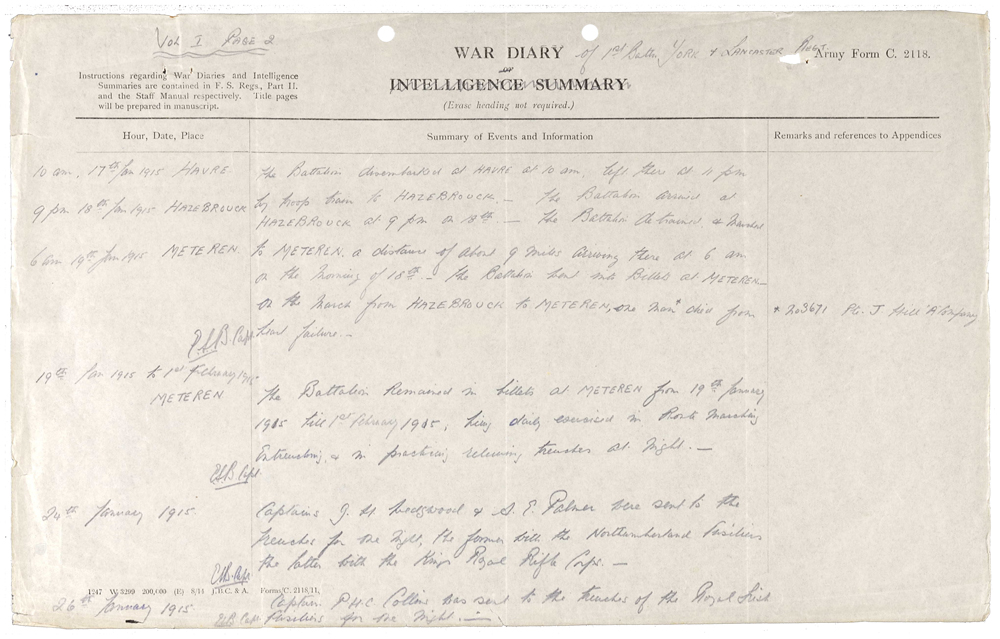 Vol I PAGE 2
WAR DIARY of 1st Battn YORK & LANCASTER Regt
Army Form C. 2118.
or
INTELLIGENCE SUMMARY
(Erase heading not required.)
Instructions regarding War Diaries and Intelligence
Summaries are contained in F. S. Regs., Part II.
and the Staff Manual respectively. Title pages
will be prepared in manuscript.
Hour, Date, Place
Summary of Events and Information
Remarks and references to Appendices
10 am. 17th Jan 1915 HAVRE
The Battalion disembarked at HAVRE at 10 am. left there at 4 pm
9 pm 18th Jan 1915 HAZEBROUCK
by troop train to HAZEBROUCK. — The Battalion arrived at
HAZEBROUCK at 9 pm on 18th. — The Battalion detrained & marched
6 am 19th Jan 1915 METEREN.
to METEREN, a distance of about 9 miles arriving there at 6 am
on the morning of 18th. — The Battalion went into Billets at METEREN —
on the March from HAZEBROUCK to METEREN, one man* died from
* 203671 Pte. J Hill 'A' Company
heart failure. —
Capt.
19th Jan 1915 to 1st February 1915
METEREN
The Battalion Remained in billets at METEREN from 19th January
1915 till 1st February 1915, being daily exercised in Route Marching
Entrenching, & in practicing relieving trenches at Night. —
Capt.
24th January 1915
Captains J. H. Ledgwood & A. E. Palmer were sent to the
trenches for the Night, the former with the Northumberland Fusiliers
the latter with the Kings Royal Rifle Corps. —
Capt
1247 W 3299 200,000 (E) 8/14 J.B.C. & A. Forms/C. 2118/11.
26th January 1915
Captain P.H.C. Collins was sent to the trenches of the Royal Irish
Capt
Fusiliers for the Night. —